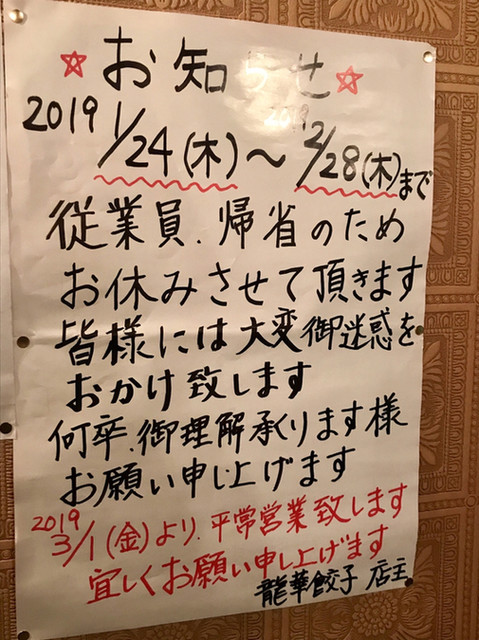 ☆お知らせ☆
2019 1/24(木)〜2/28(木)まで
従業員、帰省のため
お休みさせて頂きます
皆様には大変御迷惑を
おかけ致します
何卒、御理解承くります様
お願い申し上げます
2019 3/1(金)より、平常営業致します
宜しくお願い申し上げます
龍華餃子 店主